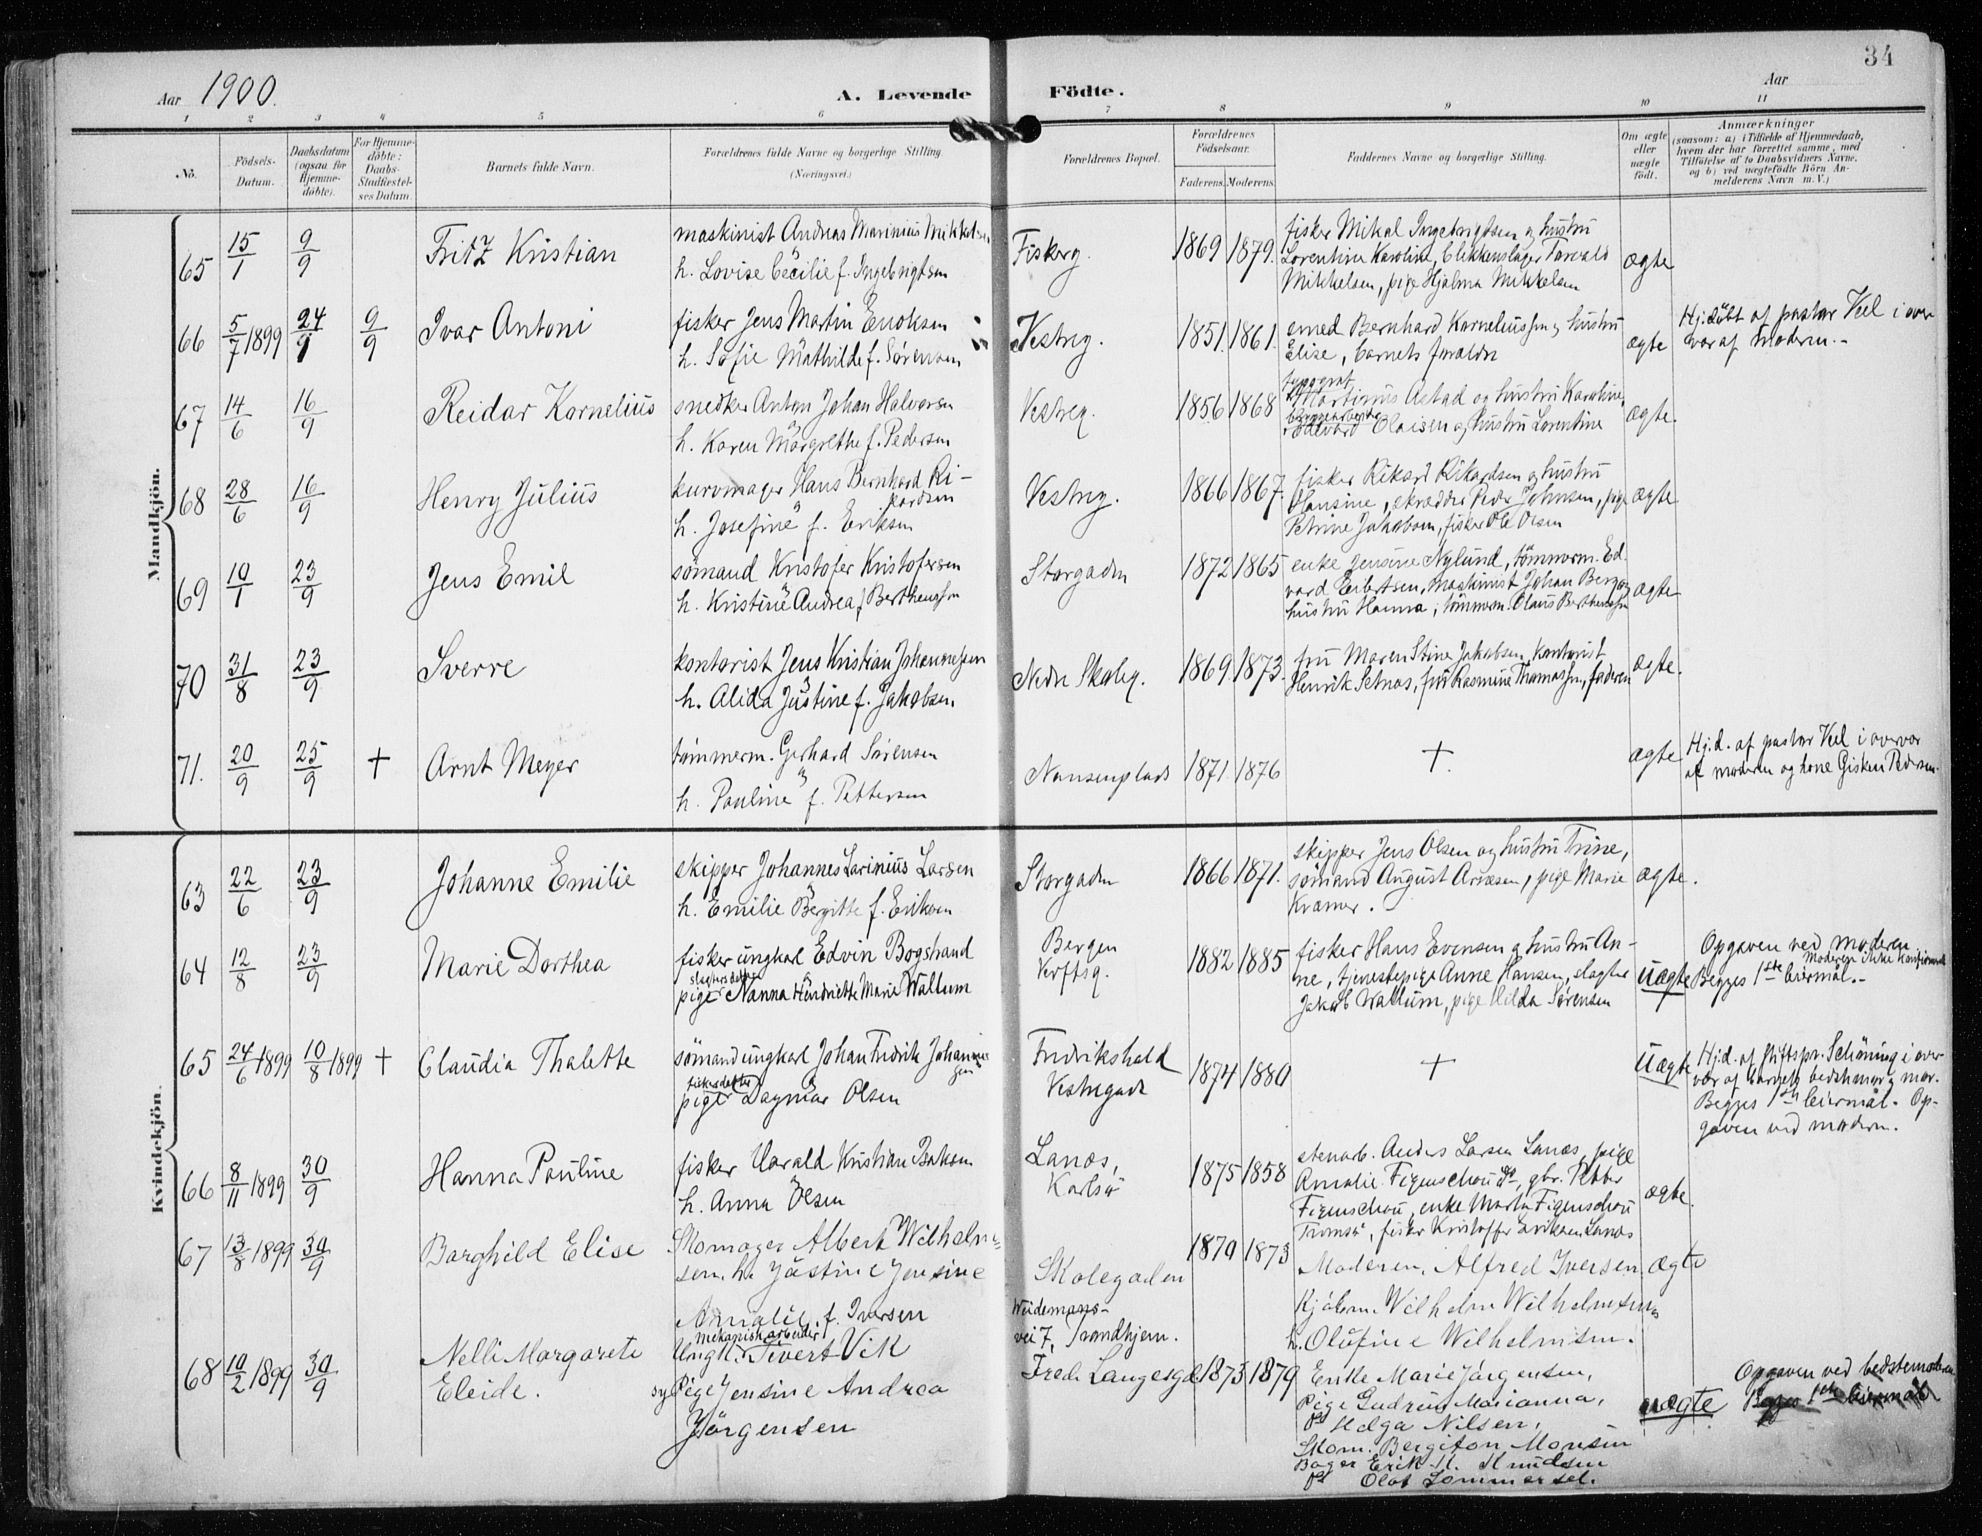 34
Aar 1900.
A. Levende Födte.
Aar
1 2 3 4 5 6 7 8 9 10 11
No.
Födsels-Datum.
Daabsdatum (ogsaa for Hjemme-döbte).
For Hjemme-döbte: Daabs-Stadfæstel-ses Datum.
Barnets fulde Navn.
Forældrenes fulde Navne og borgerlige Stilling.
(Næringsvei.)
Forældrenes Bopæl.
Forældrenes Födselsaar.
Faderens. Moderens.
Faddernes Navne og borgerlige Stilling.
Om ægte eller uægte födt.
Anmærkninger
(saasom: a) i Tilfælde af Hjemmedaab,
hvem der har forrettet samme, med
Tilföielse af to Daabsvidners Navne,
og b) ved uægtefödte Börn An-
melderens Navn m. V.)
Mandkjön.
65 15/1 9/9 Fritz Kristian
maskinist Andreas Marinius Mikkelsen
h. Lovise Cecilie f. Ingebrigtsen
Fiskerg. 1869 1879.
fisker Mikal Ingebrigtsen og hustru
Lorentine Karoline, blikkenslager Torvald
Mikkelsen, pige Hjalma Mikkelsen
ægte
66 5/7 1899 24/9 9/9 Ivar Antoni
fisker Jens Martin Enoksen
h. Sofie Mathilde f. Sørensen
Vestreg. 1851. 1861.
smed Bernhard Korneliussen og hustru
Elise, barnets forældre
ægte
Hj.døbt af pastor Kiel i over
vær af moderen.-
67 14/6 16/9 Reidar Kornelius
snedker Anton Johan Halvorsen
h. Karen Margrethe f. Pedersen
Vestreg. 1856 1868
typograf
Martinus Astad og hustru Karoline,
Edevard Olaisen og hustru Lorentine
ægte.
68 28/6 16/9 Henry Julius
kurvmager Hans Bernhard Ri-
kardsen
h. Josefine f. Eriksen
Vestreg. 1866 1867.
fisker Rikard Rikardsen og hustru
Hansine, skrædder Peder Johnsen, pige
Petrine Jakobsen, fisker Ole Olsen
ægte
69 10/1 23/9 Jens Emil
sömand Kristofer Kristofersen
h. Kristine Andrea f. Berthensen
Storgaden 1872 1865
enke Jensine Nylund, tömmerm. Ed-
vard Eibertsen, maskinist Johan Berg og
hustru Hanna, tömmerm. Olaus Berthensen
ægte
70 31/8 23/9 Sverre
kontorist Jens Kristian Johannessen
h. Alida Justine f. Jakobsen.
Nedre Skoleg. 1869. 1873.
fru Maren Stine Jakobsen, kontorist
Henrik Setnos, fru Rasmine Thomassen, faderen
ægte.
71. 20/9 25/9 + Arnt Meyer
tømmerm. Gerhard Sørensen
h. Pauline f. Pettersen
Nansenplads 1871. 1876
+
ægte
Hj.d. af pastor Kiel i overvær
af moderen og kone Gisken Pedersen.
Kvindekjön.
63 22/6 23/9 Johanne Emilie
skipper Johannes Larinius Larsen
h. Emilie Bergitte f. Eriksen
Storgaden 1866 1871.
skipper Jens Olsen og hustru Trine,
sømand August Arnesen, pige Marie
Kræmer.
ægte.
64 12/8 23/9 Marie Dorthea
fisker ungkarl Edvin Bogstrand
slagtersdatter
pige Nanna Hendriette Marie Wallum
Bergen
Verftsg. 1882 1885
fisker Hans Evensen og hustru An-
ne, tjenestepige Anne Hansen, slagter
Jakob Wallum, pige Hilda Sørensen
Uægte
Opgaven ved moderen
Moderen ikke konfirmeret
Begges 1ste leiermål.-
65 24/6 1899 10/8 1899 + Claudia Thalette
sömand ungkarl Johan Fredrik Johannes
sen
fiskerdatter
pige Dagmar Olsen
Fredrikshald
Vestregade 1874 1880
+
Uægte
Hj.d. af stiftspr. Schöning i over-
vær af barnets bedstemor og mor.
Begges 1ste leiermål. Op-
gaven ved moderen.
66 8/11 1899 30/9 Hanna Pauline
fisker Harald Kristian Isaksen
h. Anna Olsen
Lanæs,
Karlsö 1875 1858
stenarb. Anders Larsen Lanæs, pige
Amalie Figenschou, gbr. Petter
Figenschou, enke Marta Figenschou
Tromsö, fisker Kristoffer Eriksen Lanæs
ægte.
67 13/8 1899 30/9 Borghild Elise
Skomager Albert Wilhelm-
sen. h. Justine Jensine
Annalie f. Iversen
Skolegaden 1870 1873
Moderen, Alfred Iversen
Kjøbm. Wilhelm Wilhelmsen
h. Olufine Wilhelmsen.
ægte
68 10/2 1899 30/9 Nelli Margarete
Eleide.
mekanisk arbeider
Ungk. Sivert Vik
sy Pige Jensine Andrea
Jørgensen
Weidemans-
vei 7, Trondhjem.
Fred. Langesgd. 1873 1879
Enke Marie Jørgensen,
Pige Gudrun Marianna,
do Helga Nilsen,
Skom. Bergiton Monsen
Bager Erik H. Knudsen
do Olaf Sommersel.
uægte
Opgaven ved bedstemoderen
Begges 1ste leiermål